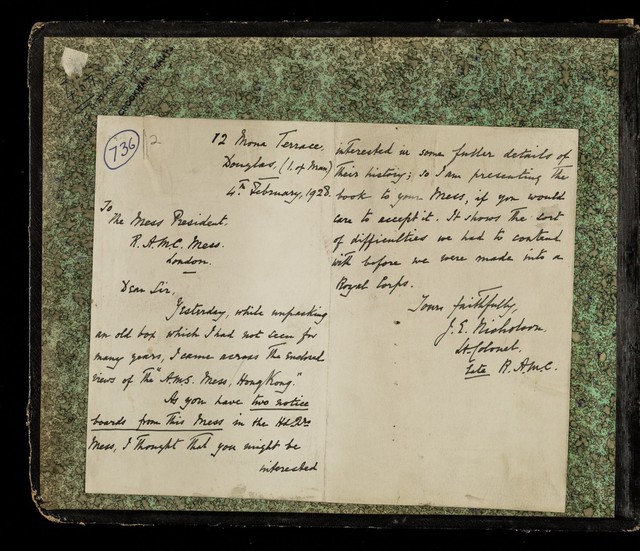 736
12
12 Mona Terrace,
Douglas, (I. of Man)
4th February, 1928.
To
The Mess President,
R.A.M.C. Mess.
London.
Dear Sir,
Yesterday, while unpacking
an old box which I had not seen for
many years, I came across the enclosed
views of the "A.M.S. Mess, Hong Kong."
As you have two notice
boards from this Mess in the Hd.Qrs
Mess, I thought that you might be
interested
interested in some fuller details of
their history; so I am presenting the
book to your Mess, if you would
care to accept it. It shows the sort
of difficulties we had to contend
with before we were made into a
Royal Corps.
Yours faithfully,
J. E. Nicholson.
Lt. Colonel.
late R.A.M.C.